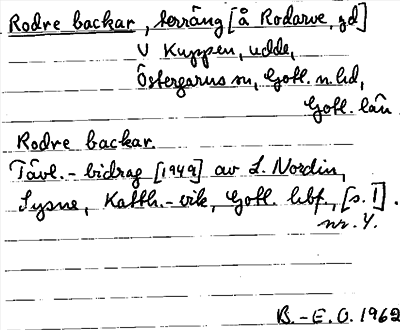 Rodre backar, terräng [å Rodarve, gd]
V Kuppen, udde,
Östergarns sn, Gotl. n. hd,
Gotl. län
Rodre backar.
Tävl.-bidrag [1949] av L. Nordin,
Sysne, Katth.-vik, Gotl. hbf., [s. 1].
nr. 4.
B.-E. O. 1962